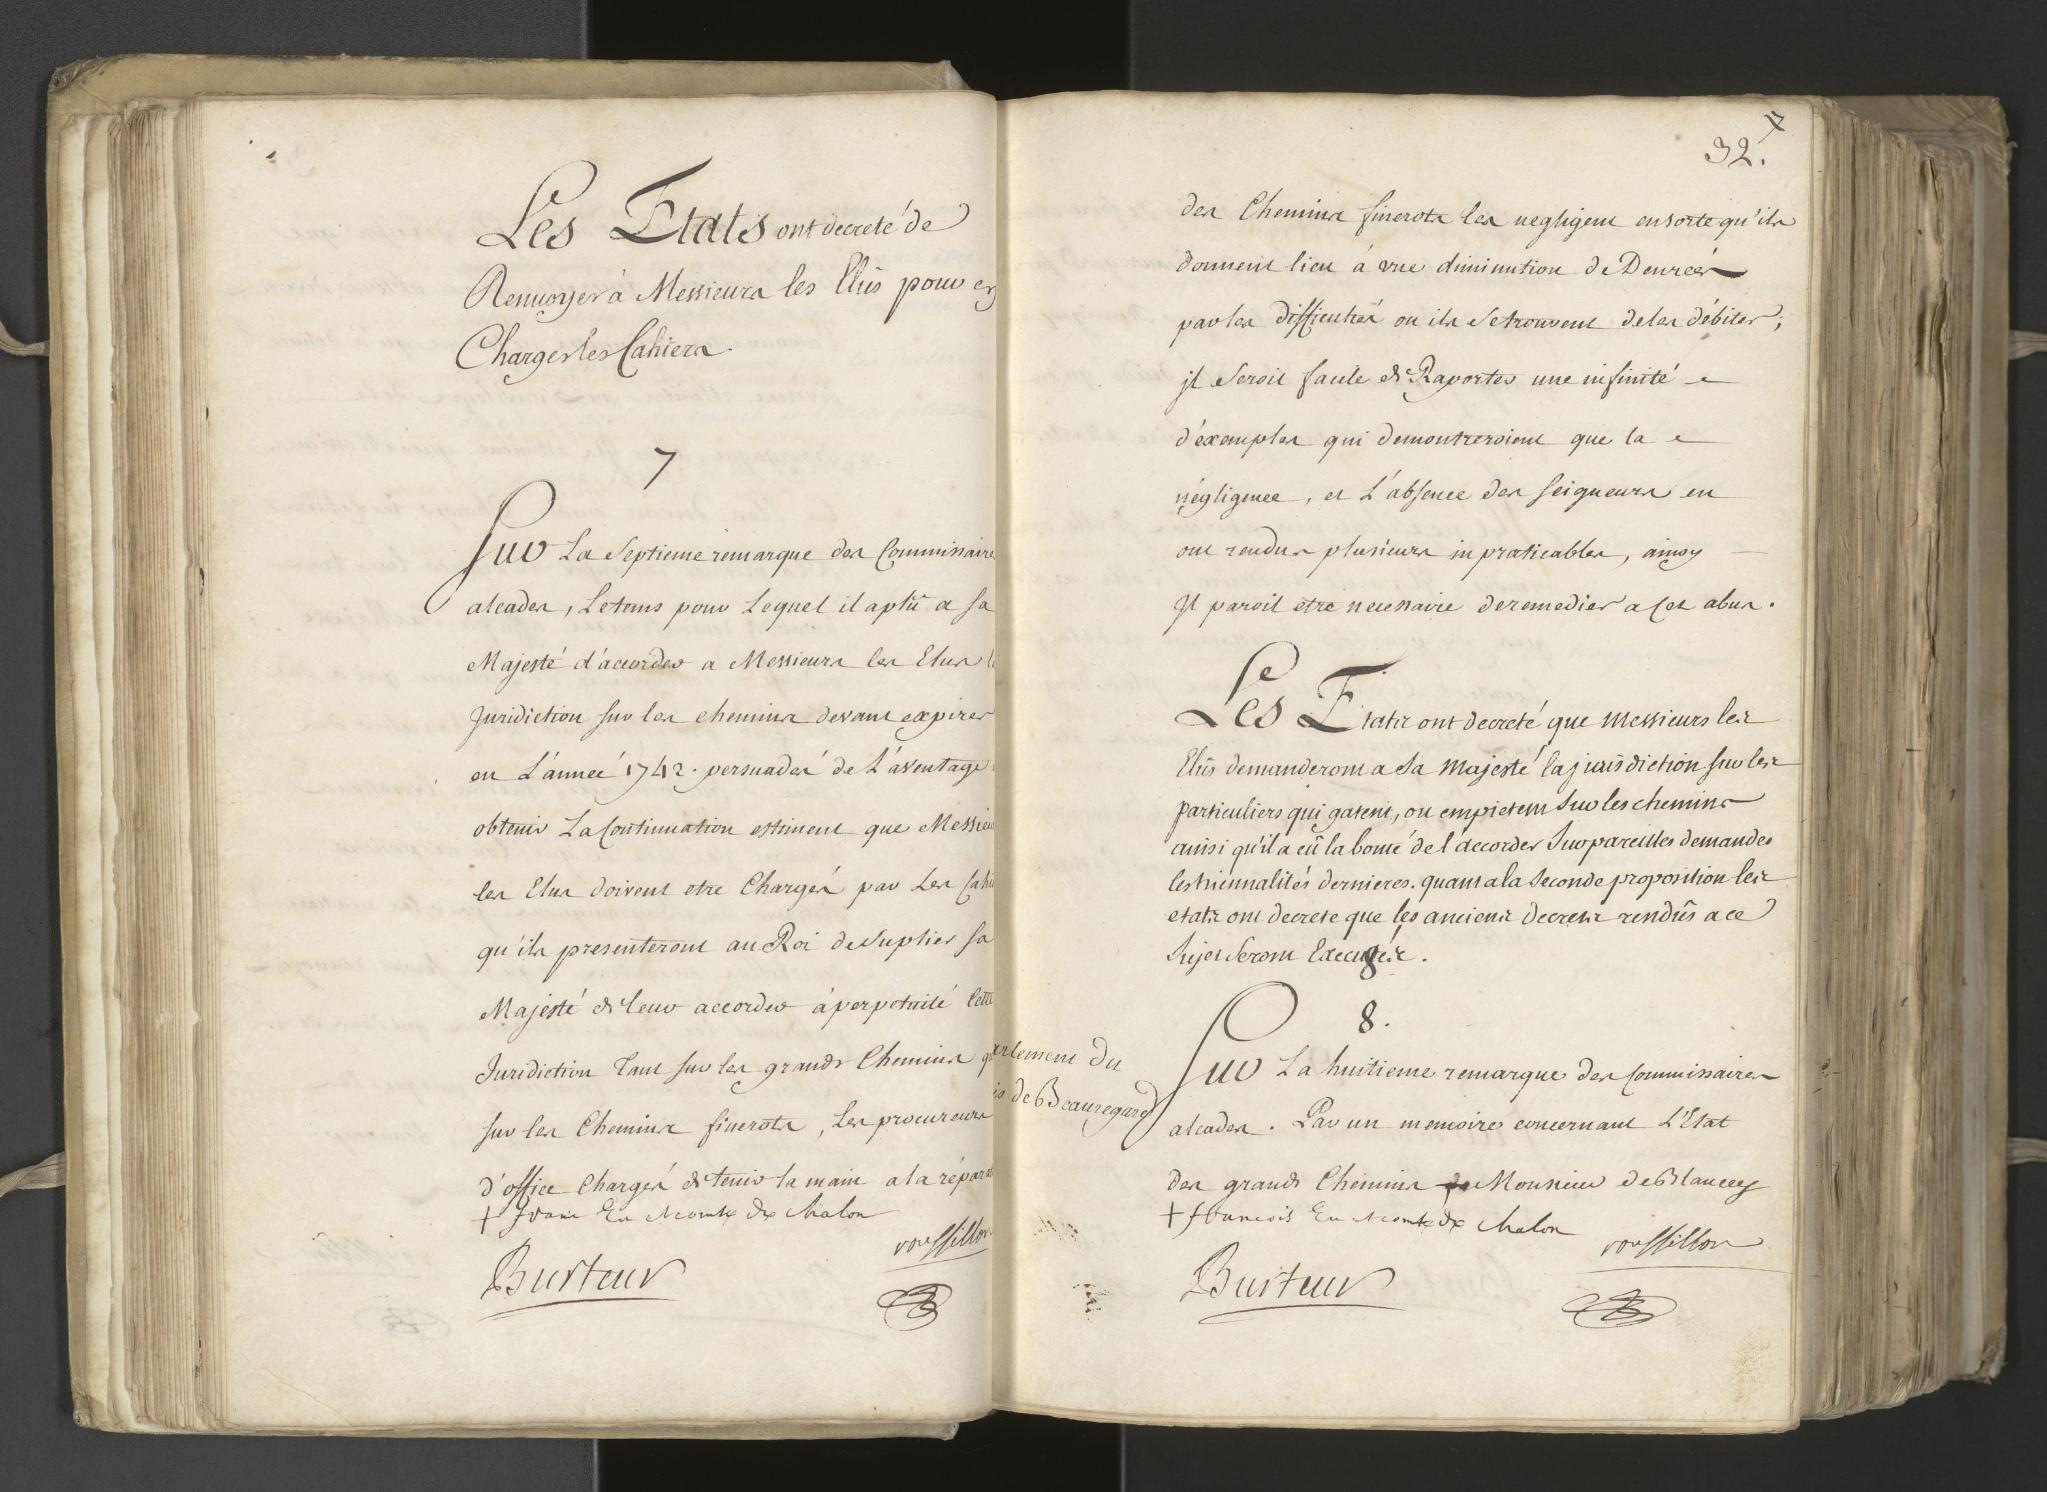 Les Etats ont decreté de
Renuoyer à Messieurs les Elûs pour en
Charger les Cahiers.
7
Sur La Septieme remarque des Commissaires
alcades, Le tems pour Lequel il a plû a sa
Majesté d'accorder a Messieurs les Elus
Juridiction sur les chemins devant expirer
en L'anneé 1742. persuadés de L'aventage
obtenir La Continuation estiment que Messieu
les Elus doivent etre Chargés par Les Cahi
qu'ils presenteront au Roi de Suplier sa
Majesté de leur accorder à perpetuité cette
Juridiction Tant sur les grands Chemins q
sur les Chemins finerots, Les procureurs
d'office Chargés de tenir la main a la répara
+ Ev Comte de Chalon
Burteur
roussillon
arlement du
is de Beauregard
32.
des Chemins finerots les negligent ensorte qu'ils
donnent lieu à vne diminution de Denreés
par les difficultés ou ils se trouvent de les débiter,
jl Seroit facile de Raporter une infinité
d'éxemples qui demontreroient que la
négligence, et L'absence des seigneurs en
ont rendus plusieurs inpraticables, ainsy
Jl paroit etre necessaire de remedier a Cet abus.
Les Etats ont decreté que Messieurs les
Elûs demanderont a Sa Majesté la jurisdiction sur les
particuliers qui gatent, ou empietent Sur les chemins
ainsi qu'il a eû la bonté de l'accorder Sur pareilles demandes
les triennalités dernieres. quant a la Seconde proposition les
etats ont decrete que les anciens decrets rendûs a ce
Sujet Seront Executés.
8.
Sur La huitieme remarque des Commissaires
alcades. Par un memoire concernant L'Etat
des grands Chemins de Monsieur de Blancey
+ francois Ev Comte de Chalon
Burteur
roussillon